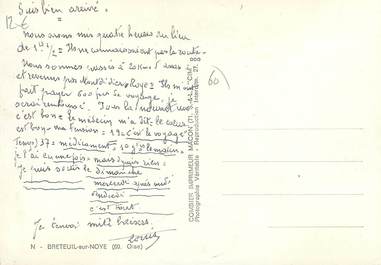 Suis bien arrivé.
12€
Nous avons mis quatre heures au lieu
de 1 1/2 = Ils ne connaissaient pas la route
Nous sommes passés à 20 Kms
et revenus par Montdidier Roye = Ils m'ont
fait payer 600 par le voyage, je
serai remboursé = Tous la nourriture
c'est bon = le médecin m'a dit : le cœur
est bon = ma tension = 19 (c'est le voyage
Temps) 37 = médicament =
je l'ai eu une fois = mais depuis rien =
Je puis sortir le dimanche
mercredi après midi
vendredi
c'est tout
Je t'envoi mille baisers.
Louis
N - BRETEUIL-sur-NOYE (60. Oise)
COMBIER IMPRIMEUR MACON (71. S.-&-L.) "CIM"
Photographie Véritable - Reproduction Interdite.
60